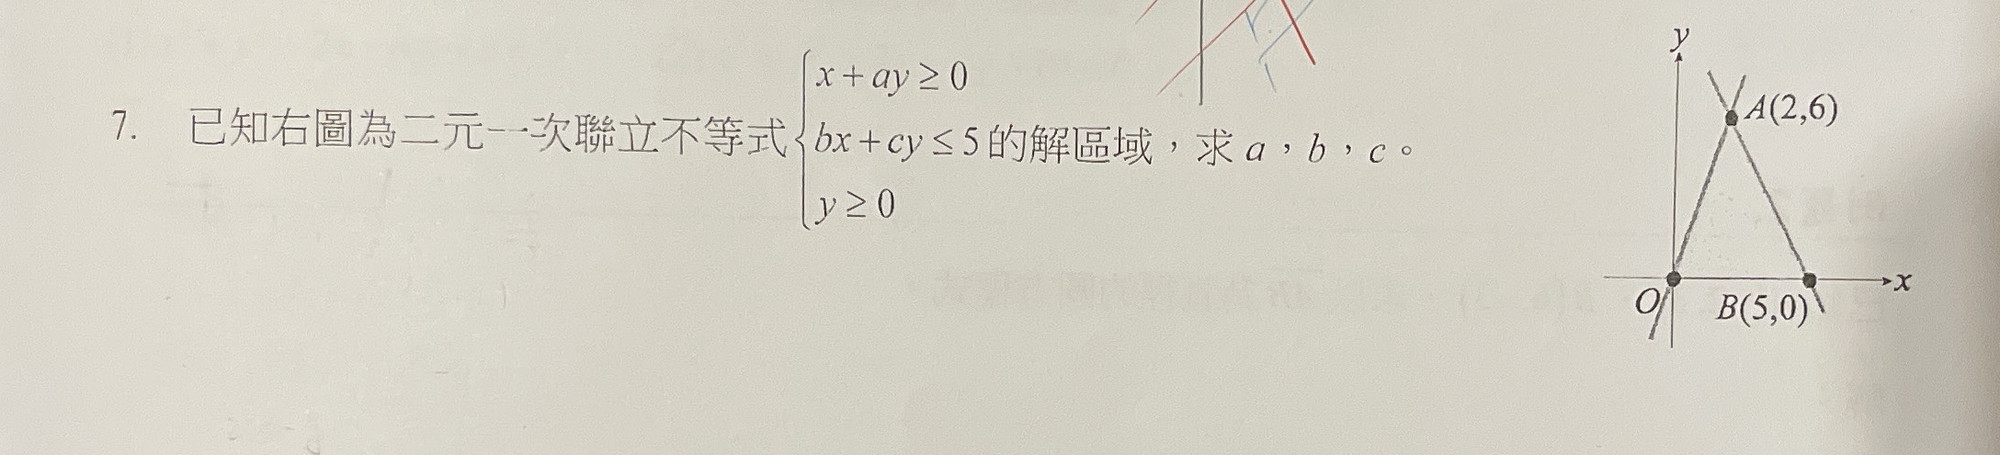 7. 已知右圖為二元一次聯立不等式{x+ay≥0
bx+cy≤5的解區域，求a，b，c。
y≥0
y
A(2,6)
x
O
B(5,0)